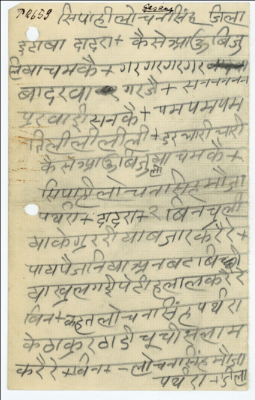 सिपाही लोचनसिंह जिला
इटावा दादरा + कैसे आऊ बिजु
लिया चमकै + गर गर गर गर गर
बादरवा गरजै + सननननन
पुरवाई सनकै + पम पम पम
लीलीलीली + डर चारी चारो
कैसे आऊ बिजुलिया चमकै +
सिपाही लोचनसिंह मौजा
पथरा + दादरा + २ बिन चूली
या के गुररी या बजार करैरे +
पाय पैजनिया अनवट बिछी
या खुल गई पेटी हलाल करैरे
बिन + कहत लोचनसिंह पथरा
के ठाकुर ठाडी चूची सलाम
करैरे + बिन + - लोचनसिंह मौजा
पथरा + डीला